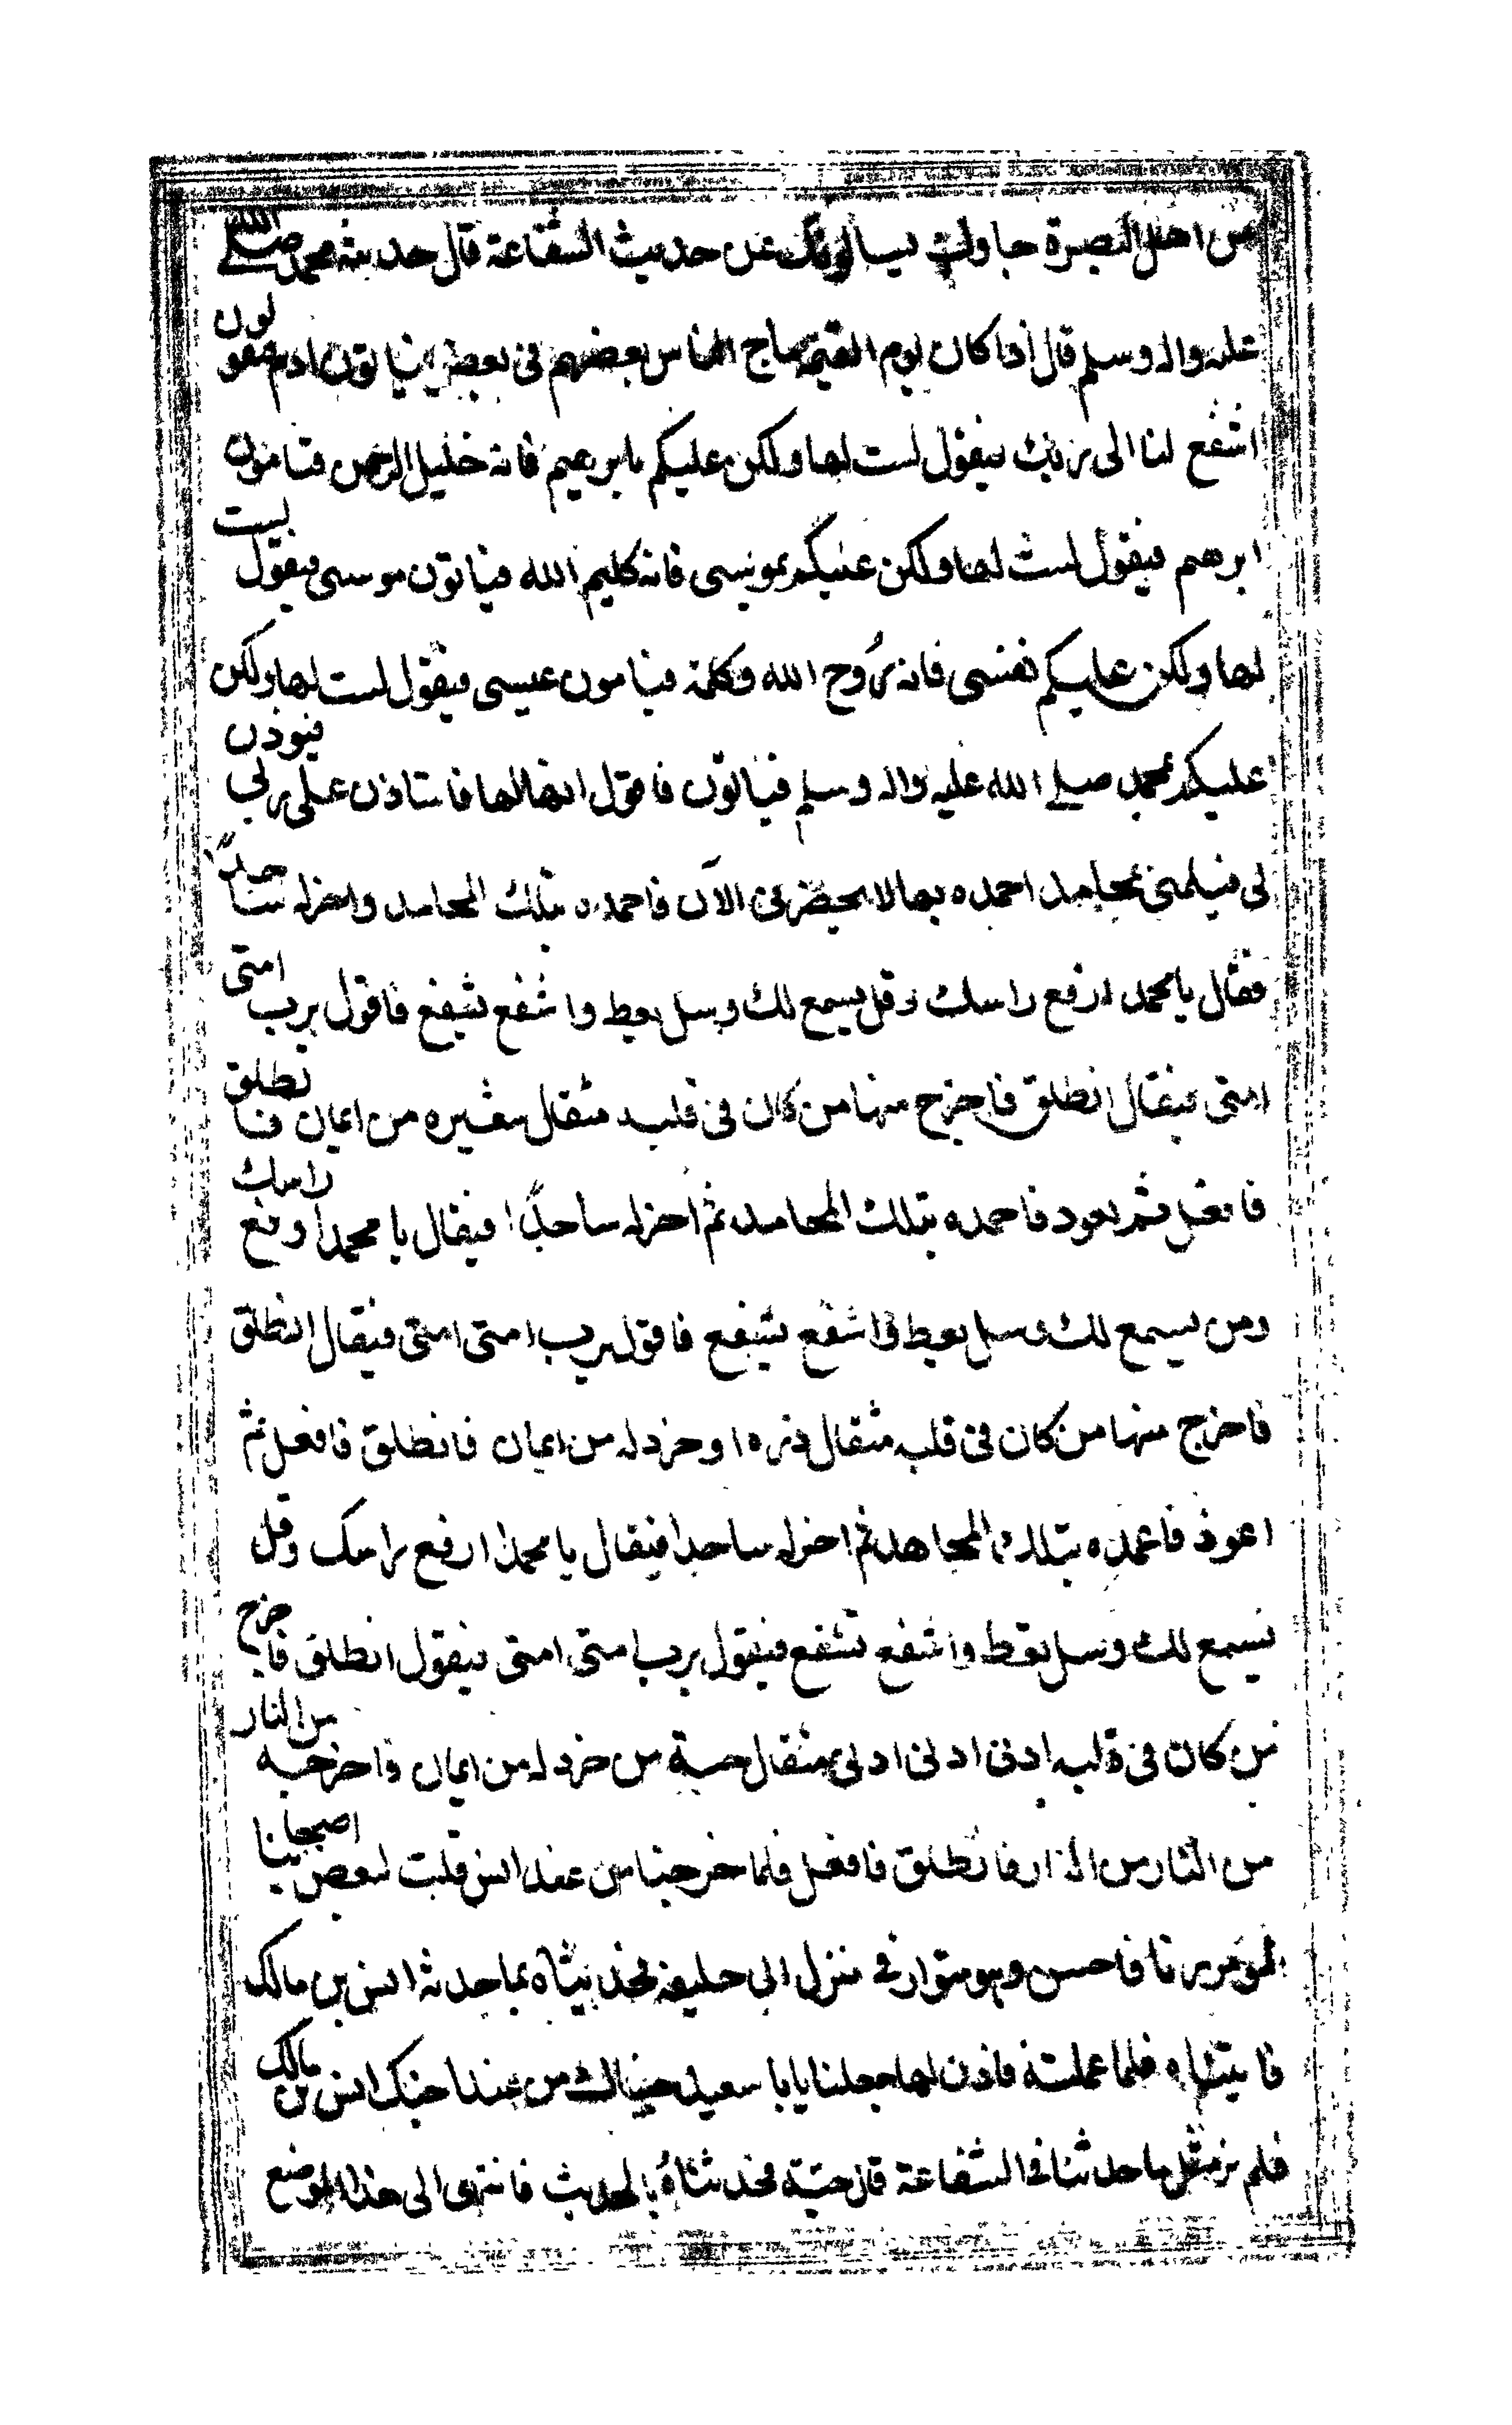 من اهل البصرة جاوك يسالونك عن حديث الشفاعة قال حدثنا محمد صلى الله
عليه واله وسلم قال اذا كان يوم القيمة ماج الناس بعضهم فى بعض فياتون ادم فيقولون
اشفع لنا الى ربك فيقول لست لها ولكن عليكم بابرهيم فانه خليل الرحمن فياتون
ابرهيم فيقول لست لها ولكن عليكم بموسى فانه كليم الله فياتون موسى فيقول لست
لها ولكن عليكم بعيسى فانه روح الله وكلمة فياتون عيسى فيقول لست لها ولكن
عليكم بمحمد صلى الله عليه واله وسلم فياتون فاقول انا لها فاستاذن على ربى فيوذن
لى فيلهمنى بمحامد احمده بها لا يحضرنى الآن فاحمده بتلك المحامد واخر له ساجداً
فقال يا محمد ارفع راسك وقل يسمع لك وسل يعط واشفع تشفع فاقول يرب امتى
امتى فيقال انطلق فاخرج منها من كان فى قلبه مثقال شعيره من ايمان فانطلق
فافعل ثم يعود فاحمده بتلك المحامد ثم اخر له ساجدًا فيقال يا محمد ارفع راسك
وقل يسمع لك وسل يعط واشفع تشفع فاقول يرب امتى امتى فيقال انطلق
فاخرج منها من كان فى قلبه مثقال ذره او خردله من ايمان فانطلق فافعل ثم
اعود فاحمده بتلك المحامد ثم اخر له ساجدا فيقال يا محمد ارفع راسك وقل
يسمع لك وسل تعط واشفع تشفع فيقول يرب امتى امتى فيقول انطلق فاخرج
من كان فى قلبه ادنى ادنى ادنى مثقال حبة من خردله من ايمان فاخرجه من النار
من النار من النار فانطلق فافعل فلما خرجنا من عند انس قلت لبعض اصحابنا
لو مررنا فاحسن وهو متوار فى منزل ابى خليفه فحدثناه بما حدثه انس بن مالك
فاتيناه فلما فاذن لها فقلنا يابا سعيد جئناك من عند اخيك انس بن مالك
فلم نر مثل ما حدثنا فى الشفاعة قال هيه فحدثناه بالحديث فانتهى الى هذا الموضع